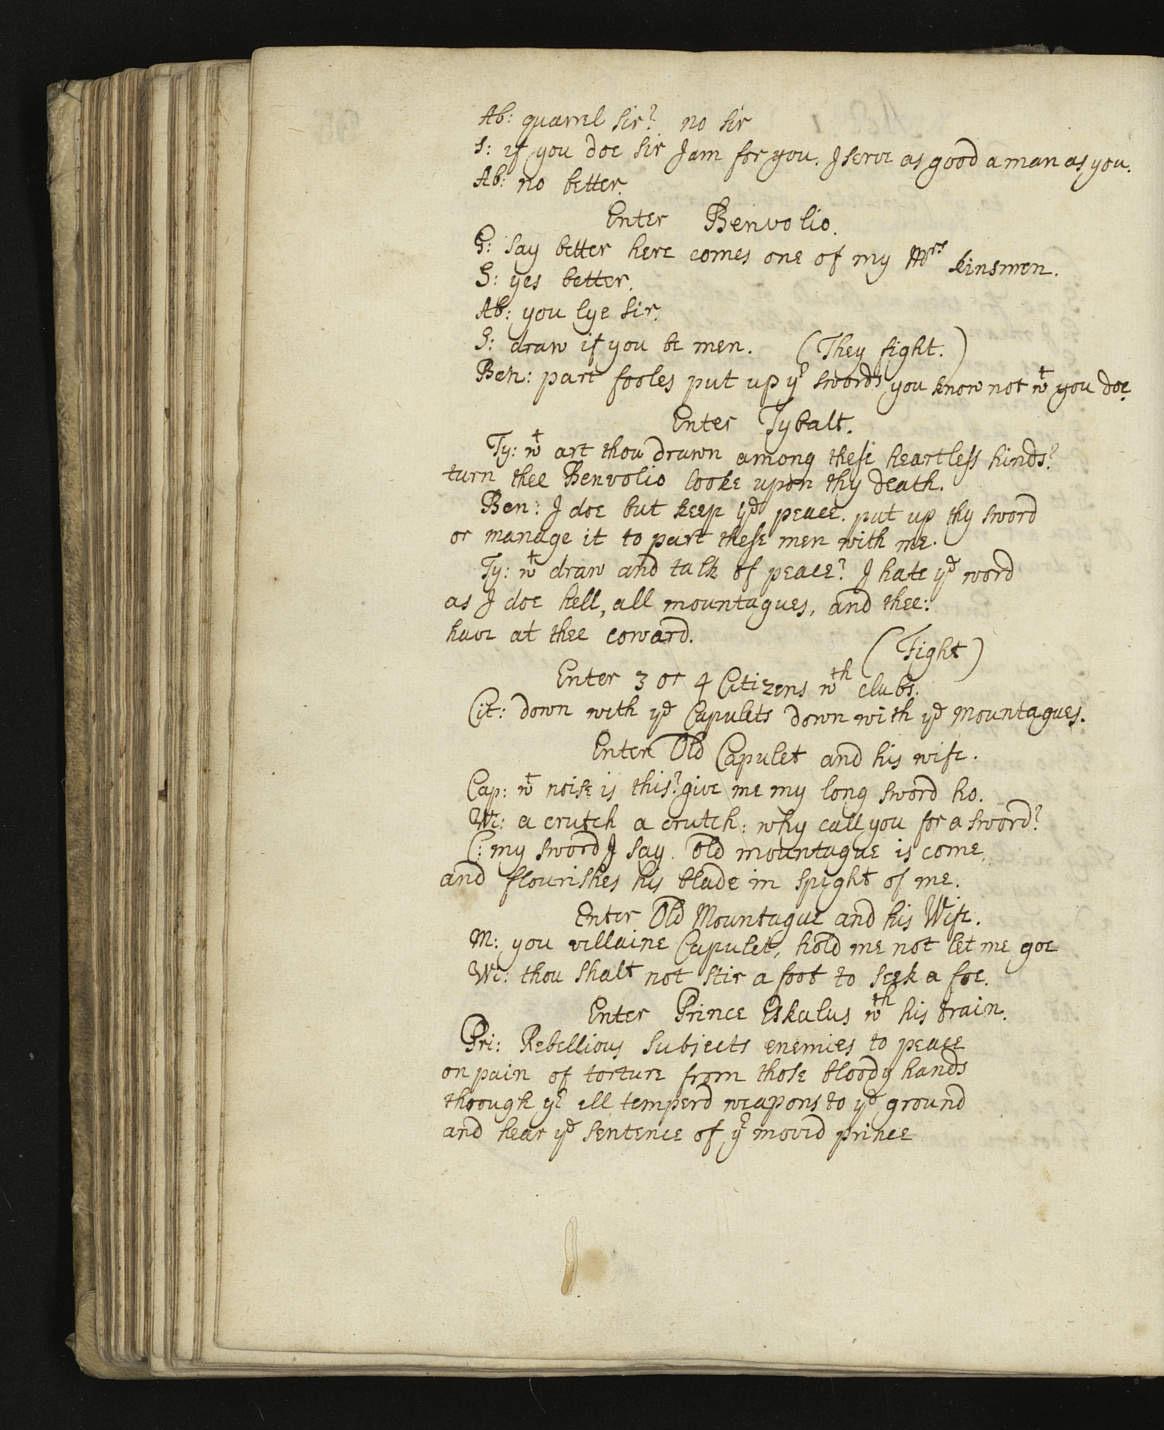 Ab: quarrel Sir? no Sir
S: if you doe Sir I am for you. I serve as good a man as you.
Ab: no better.
Enter Benvolio.
G: Say better here comes one of my Mrs kinsmen.
S: yes better.
Ab: you lye Sir.
S: draw if you be men. (They fight.)
Ben: part fooles put up yr swords you know not wt you doe.
Enter Tybalt.
Ty: wt art thou drawn among these heartless hinds?
turn thee Benvolio looke upon thy death.
Ben: I doe but keep ye peace. put up thy sword
or manage it to part these men with me.
Ty: wt draw and talk of peace? I hate ye word
as I doe hell, all mountagues, and thee:
have at thee coward. (Fight)
Enter 3 or 4 Citizens wth clubs.
Cit: down with ye Capulets down with ye Mountagues.
Enter Old Capulet and his wife.
Cap: wt noise is this? give me my long sword ho.
Wi: a crutch a crutch: why call you for a sword?
C: my sword I say. Old mountague is come,
and flourishes his blade in spight of me.
Enter Old Mountague and his Wife.
M: you villaine Capulet, hold me not let me goe
Wi: thou shalt not stir a foot to seek a foe.
Enter Prince Eskalus wth his train.
Pri: Rebellious Subjects enemies to peace
on pain of torture from those bloody hands
through yr ill temperd weapons to ye ground
and hear ye sentence of yr movid prince